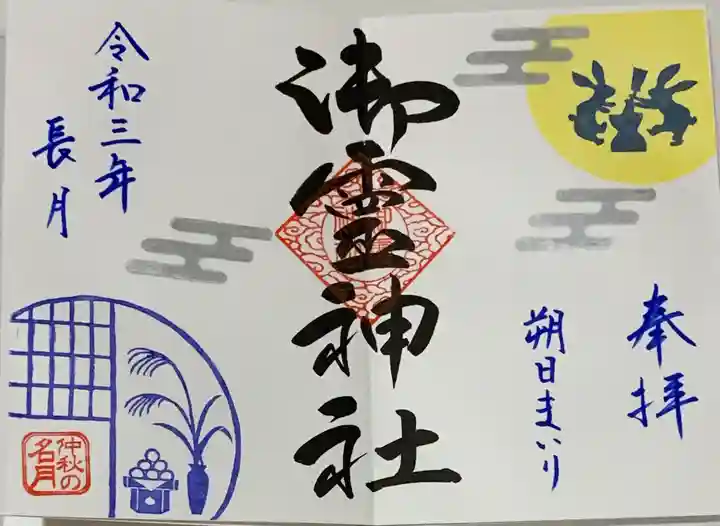 奉拝
朔日まいり
御霊神社
令和三年
長月
仲秋の
名月